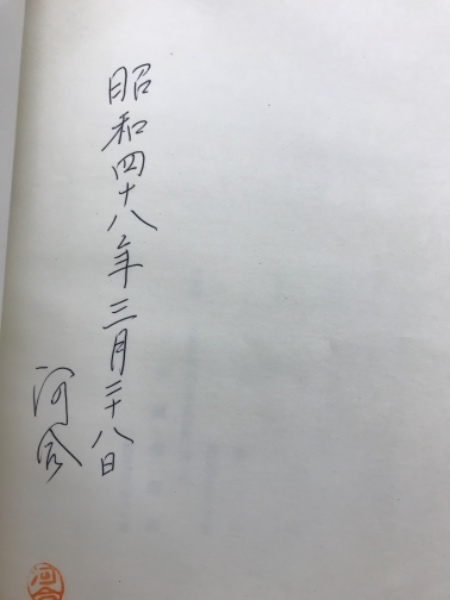 昭和四十八年三月二十八日
河合
河合